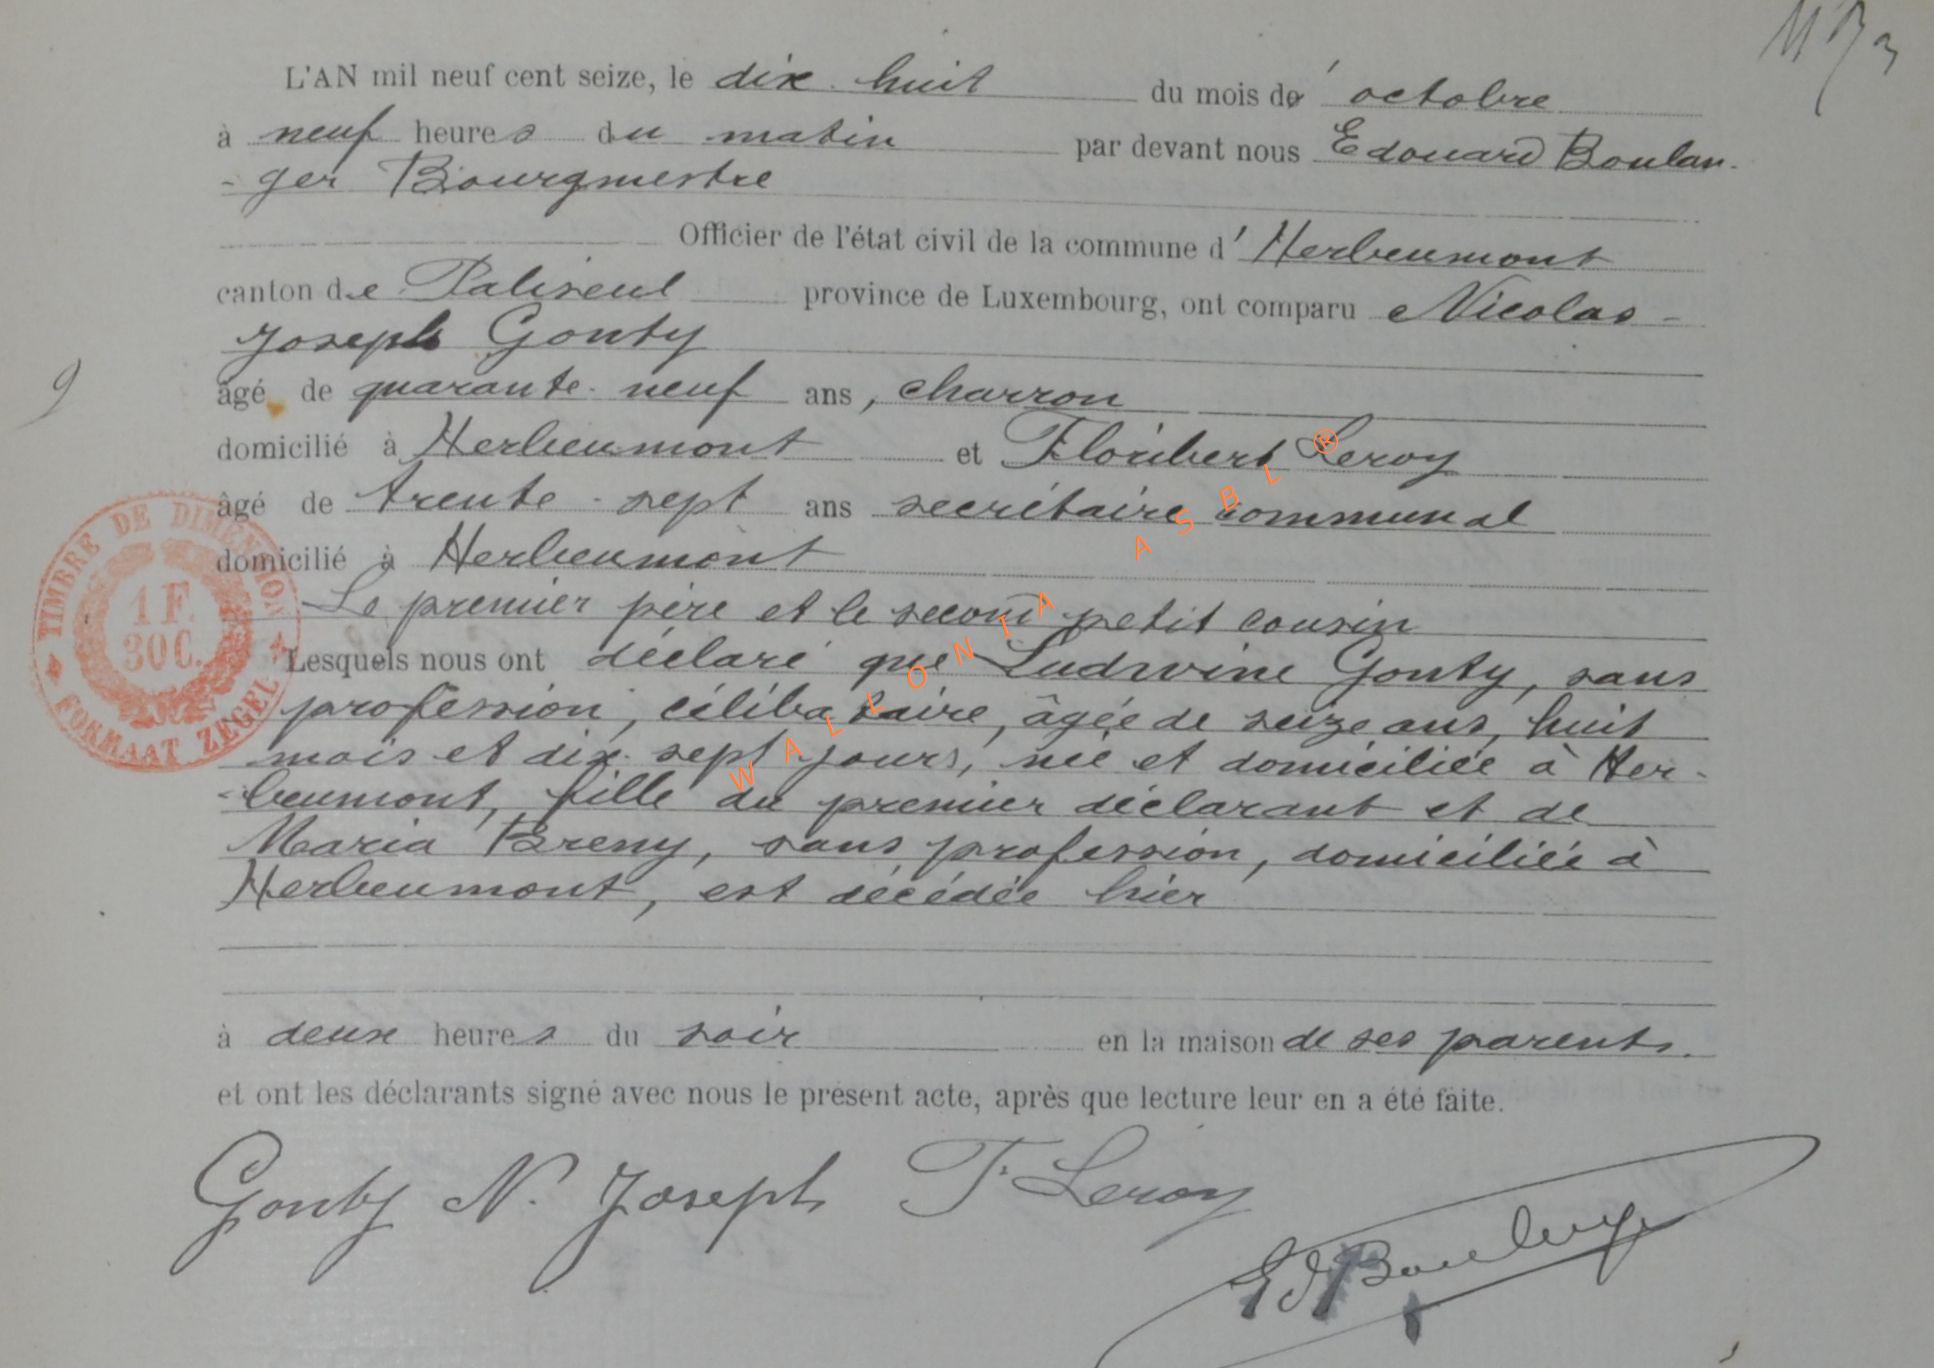 L'AN mil neuf cent seize, le dix-huit du mois d' octobre
à neuf heures du matin par devant nous Edouard Boulan-
-ger Bourgmestre
Officier de l'état civil de la commune d' Herbeumont
canton de Paliseul province de Luxembourg, ont comparu Nicolas-
Joseph Gonty
âgé de quarante-neuf ans, charron
domicilié à Herbeumont et Floribert Leroy
âgé de trente-sept ans secrétaire communal
domicilié à Herbeumont
Le premier père et le second petit cousin
Lesquels nous ont déclaré que Ludwine Gonty, sans
profession, célibataire, âgée de seize ans, huit
mois et dix-sept jours, née et domiciliée à Her-
-beumont, fille du premier déclarant et de
Maria Breny, sans profession, domiciliée à
Herbeumont, est décédée hier
à deux heures du soir en la maison de ses parents.
et ont les déclarants signé avec nous le présent acte, après que lecture leur en a été faite.
Gonty N. Joseph F Leroy
Ed Boulanger
9
TIMBRE DE DIMENSION
1 F.
30 C.
FORMAAT ZEGEL
WALLONIA ASBL ®